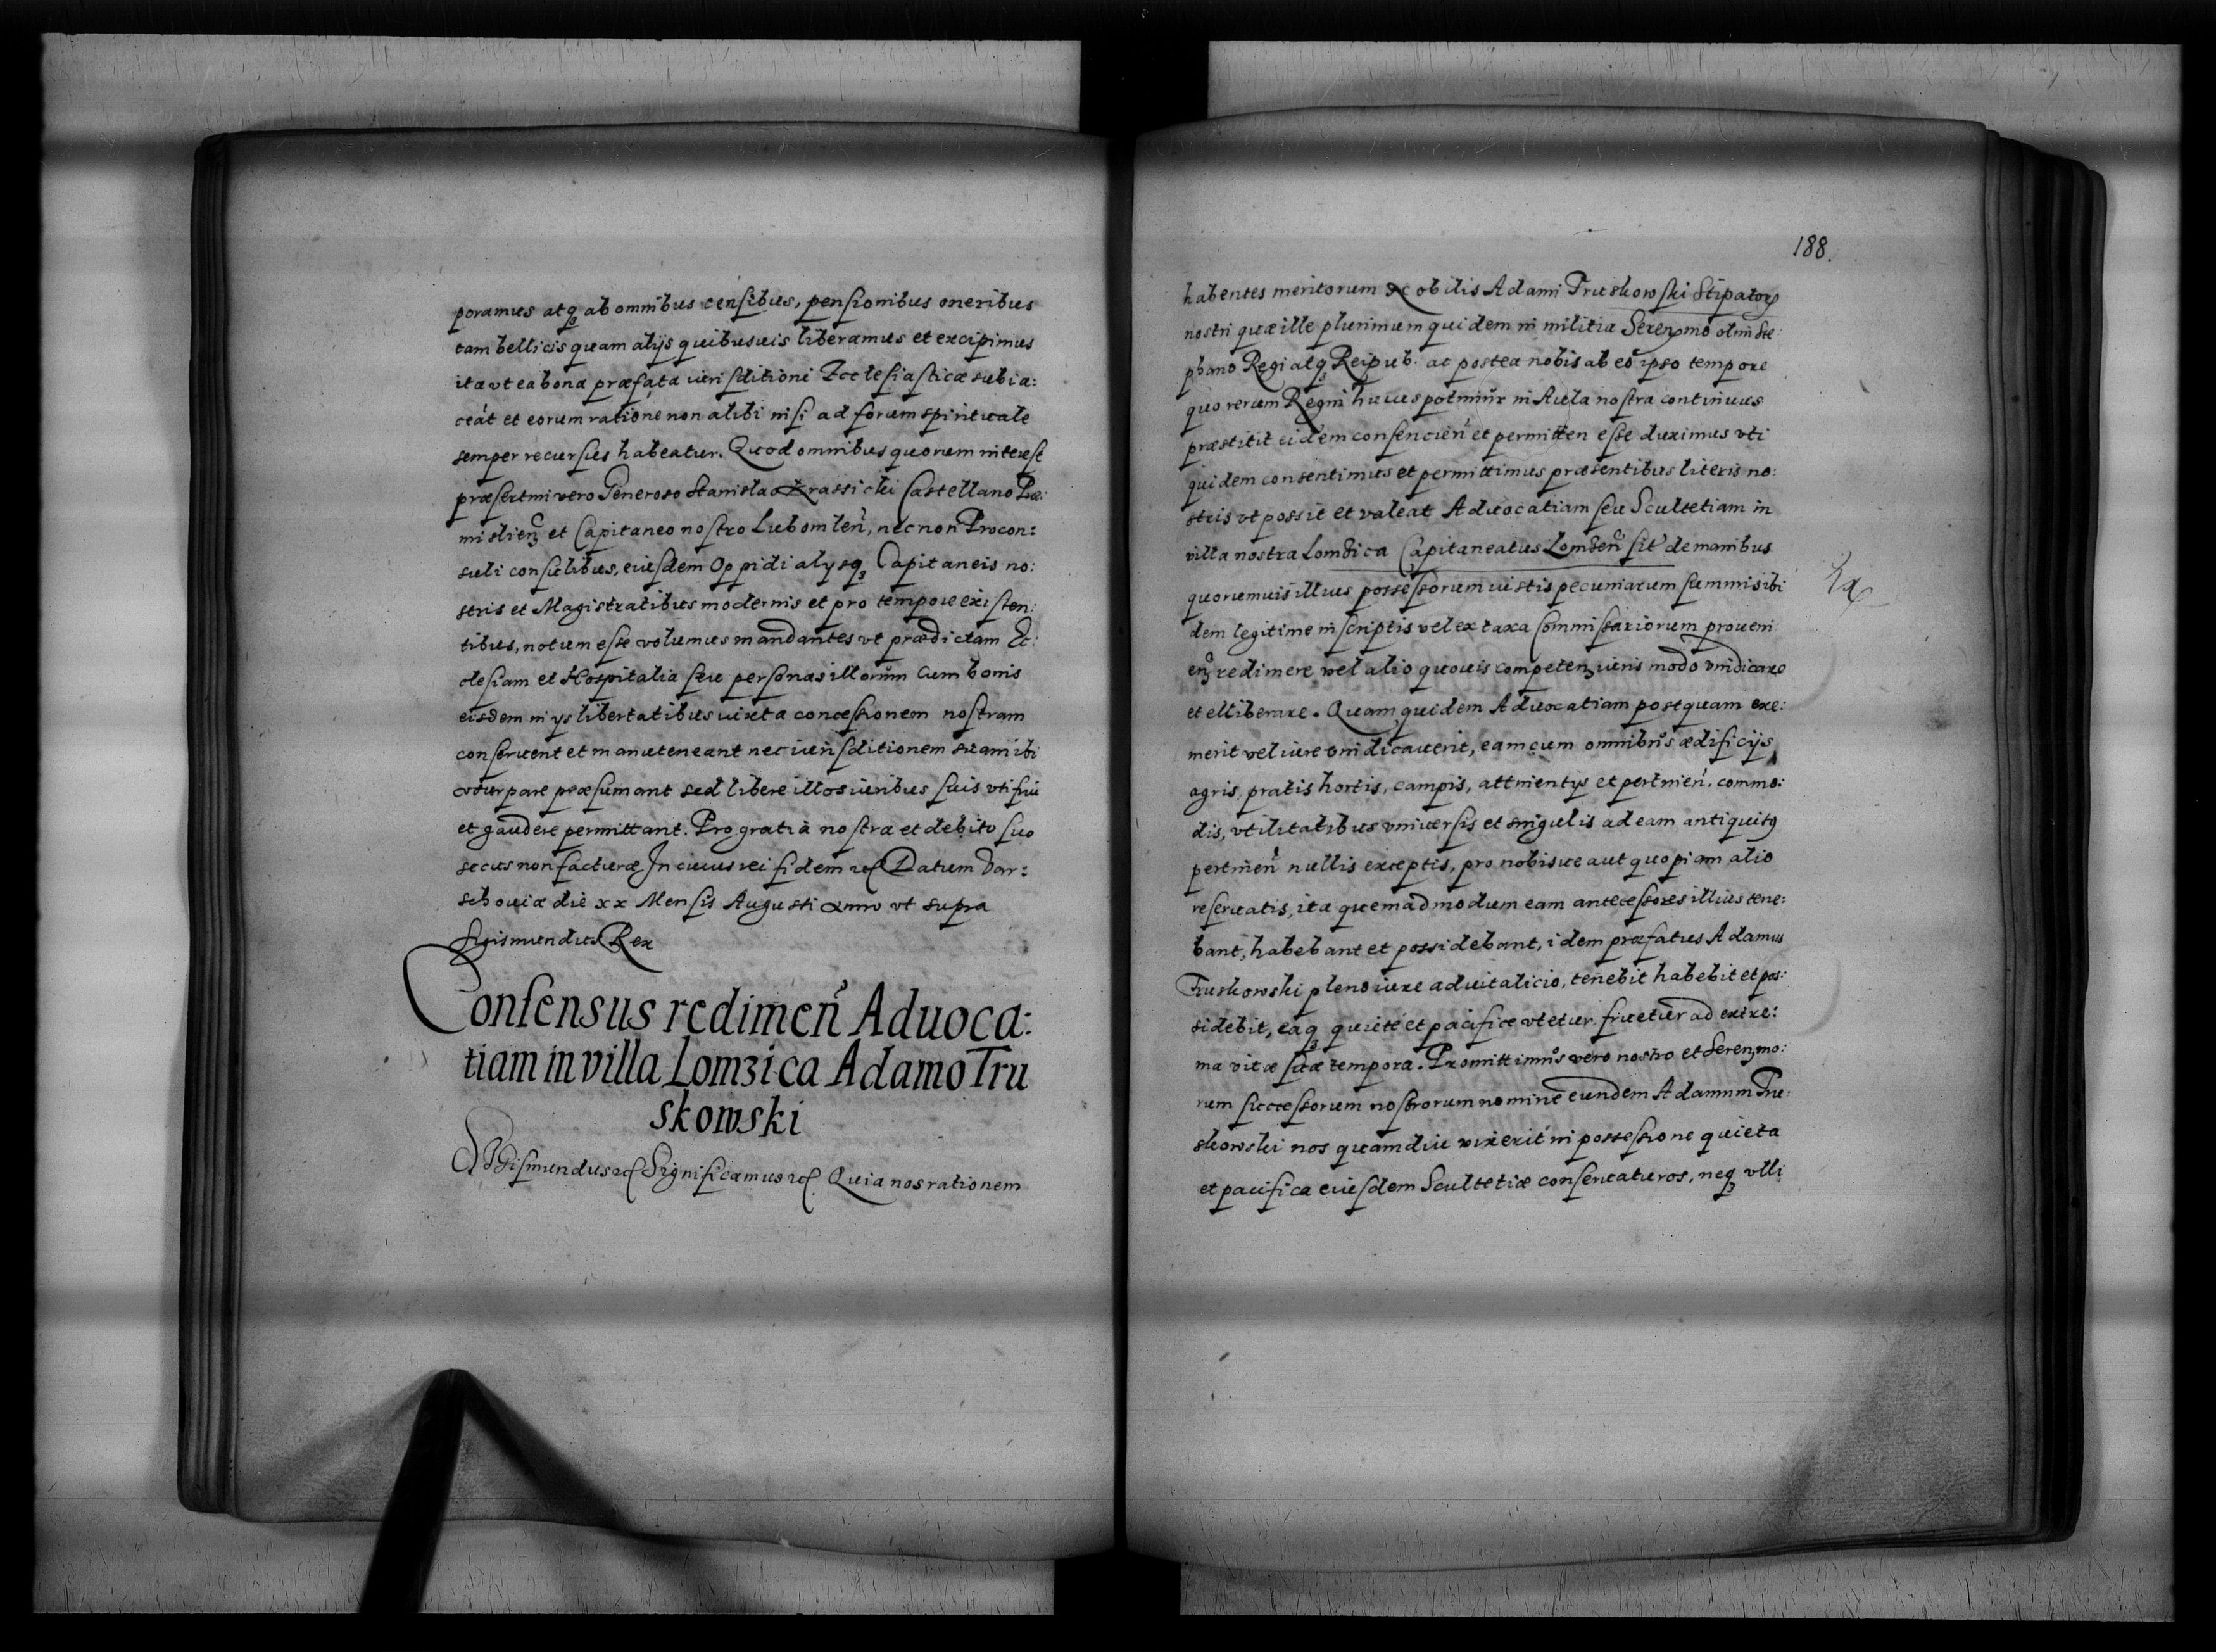 poramus atq₃ ab omnibus censibus, pensionibus oneribus
tam bellicis quam alijs quibusuis liberamus et excipimus
ita vt ea bona præfata iurisditioni Ecclesiasticæ subia:
ceãt et eorum ratione non alibi nisi ad forum spirituale
semper recursus habeatur. Quod omnibus quorum interest
præsertim vero Generoso Stanislao Krassicki Castellano Præ:
mislien̄ et Capitaneo nostro Lubomlen̄, necnon Procon:
suli consulibus, eiusdem Oppidi alysq₃ Capitaneis no:
stris et Magistratibus modernis et pro tempore existen:
tibus, notum esse volumus mandantes vt prædictam Ec:
clesiam et Hospitalia seu personas illorum cum bonis
eisdem in ys libertatibus iuxta concessionem nostram
conseruent et manuteneant nec iurisditionem suam ibi
vsurpare præsumant sed libere illos iuribus suis vti frui
et gaudere permittant. Pro gratia nostra et debito suo
secus non facturæ In cuius rei fidem etc Datum Var:
schouiæ die xx Mensis Augusti anno vt supra
Sigismundus Rex
Consensus redimen̄ Aduoca:
tiam in villa Lomzica Adamo Tru
skowski
Sigismundus etc Significamus etc Quia nos rationem
188.
habentes meritorum Nobilis Adami Truskowski Stipatoris
nostri quæ ille plurimum quidem in militia Serenmo olim Ste:
phano Regi atq₃ Reipub. ac postea nobis ab eo ipso tempore
quo rerum Regni huius potimur in Aula nostra continuus
præstitit eidem consencien̄ et permitten esse duximus vti
quidem consentimus et permittimus præsentibus literis no:
stris vt possit et valeat Aduocatiam seu Scultetiam in
villa nostra Lomzica Capitaneatus Lomzen̄ sit̄ de manibus
quorumuis illius possessorum iustis pecuniarum summis ibi
dem legitime inscriptis vel ex taxa Commissariorum proueni
en̄ redimere vel alio quouis competen iuris modo vindicare
et eliberare. Quam quidem Aduocatiam postquam exe:
merit vel iure vindicauerit, eam cum omnibus ædificijs,
agris, pratis hortis, campis, attinentys et pertinen̄. commo:
dis, vtilitatibus vniuersis et singulis ad eam antiquitus
pertinen̄ nullis exceptis, pro nobisue aut quopiam alio
reseruatis, ita quemadmodum eam antecessores illius tene:
bant, habebant et possidebant, idem præfatus Adamus
Truskowski pleno iure aduitalicio, tenebit habebit et pos:
sidebit, eaq₃ quiete et pacifice vtetur fruetur ad extre:
ma vitæ suæ tempora. Promittimus vero nostro et Serenmo:
rum successorum nostrorum nomine eundem Adamum Tru:
skowski nos quamdiu vixerit in possessione quieta
et pacifica eiusdem Scultetiæ conseruaturos, neq₃ vlli